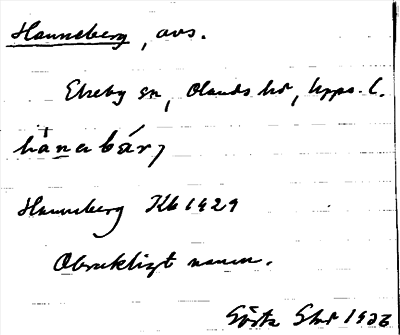 Hanneberg, avs.
Ekeby sn, Olands hd, Upps. l.
Hanneberg Kb 1929
Obrukligt namn.
Gösta 1936